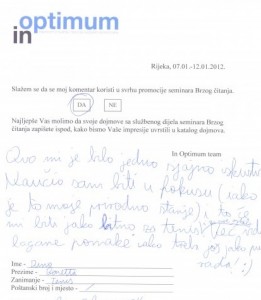 optimum
in
Rijeka, 07.01.-12.01.2012.
Slažem se da se moj komentar koristi u svrhu promocije seminara Brzog čitanja.
DA NE
Najljepše Vas molimo da svoje dojmove sa službenog dijela seminara Brzog
čitanja zapišete ispod, kako bismo Vaše impresije uvrstili u katalog dojmova.
In Optimum team
Ovo mi je bilo jedno sjajno iskustvo
Naučio sam biti u fokusu (iako
je to moje prirodno stanje), to je
mi biti jako bitno za tenis
pomake iako treba još jako puno
rada! :)
Ime -
Prezime -
Zanimanje - Tenis
Poštanski broj i mjesto -